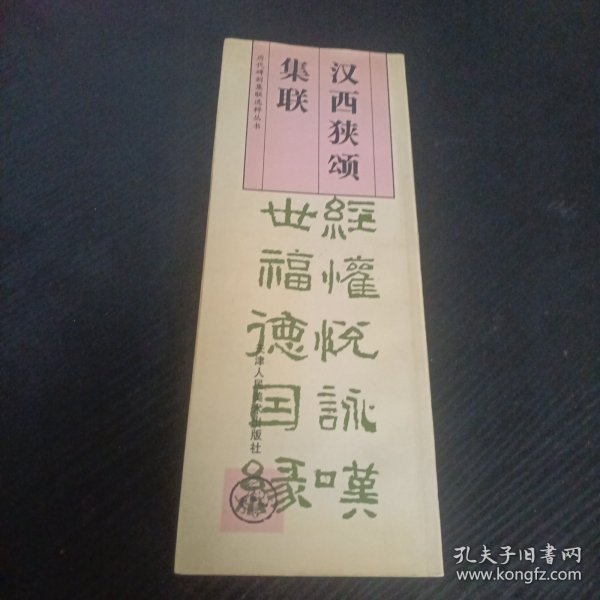 汉西狭颂
集联
历代碑刻集联选粹丛书
經懽悦詠嘆
世福德国緣
天津人民美术出版社
孔夫子旧书网
www.kongfz.com